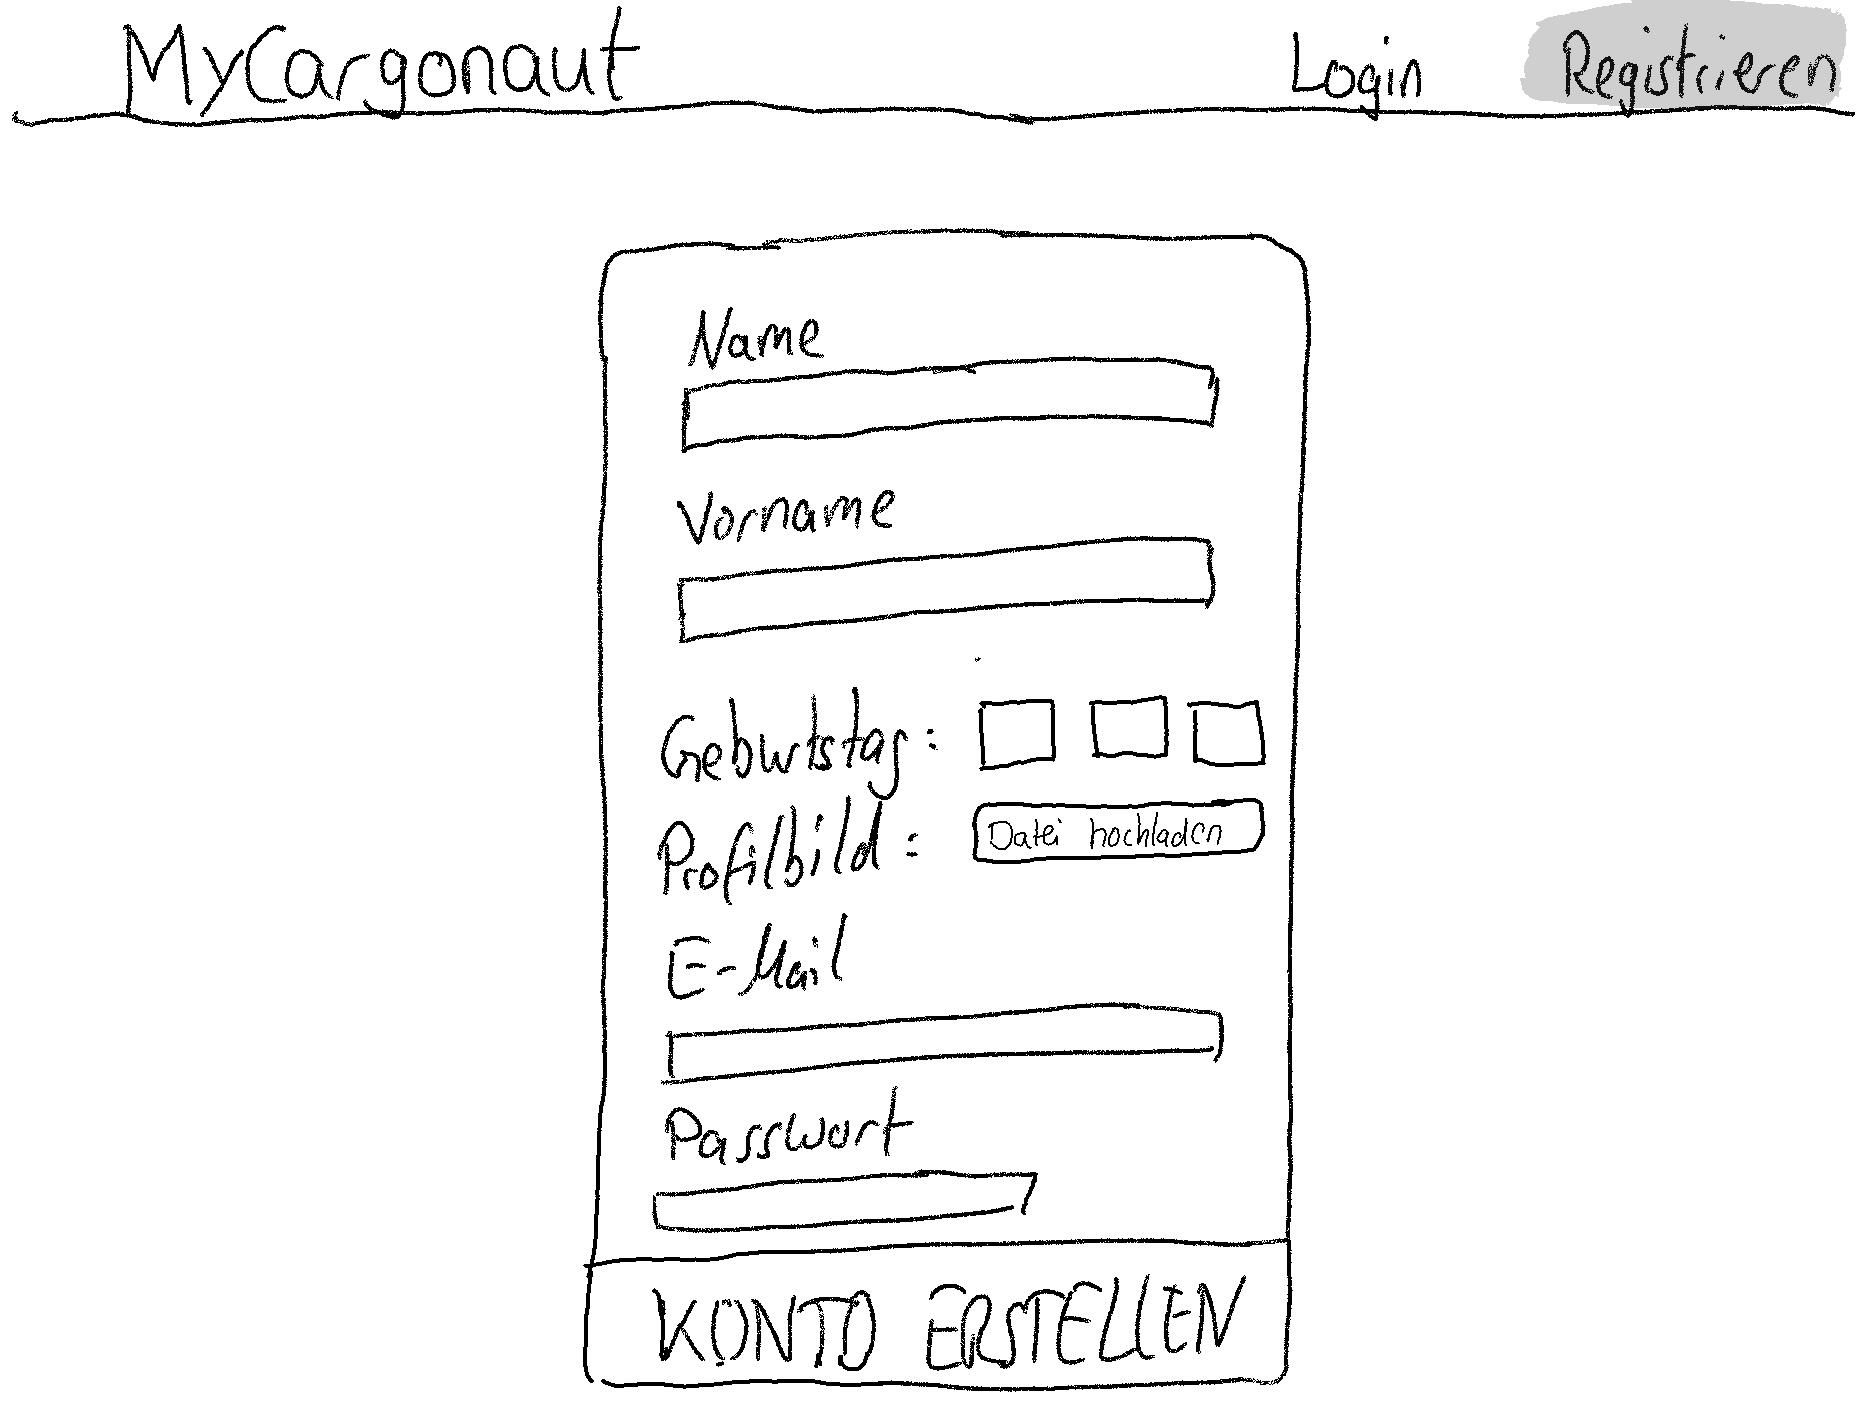 MyCargonaut Login Registrieren
Name
Vorname
Geburtstag:
Profilbild: Datei hochladen
E-Mail
Passwort
KONTO ERSTELLEN